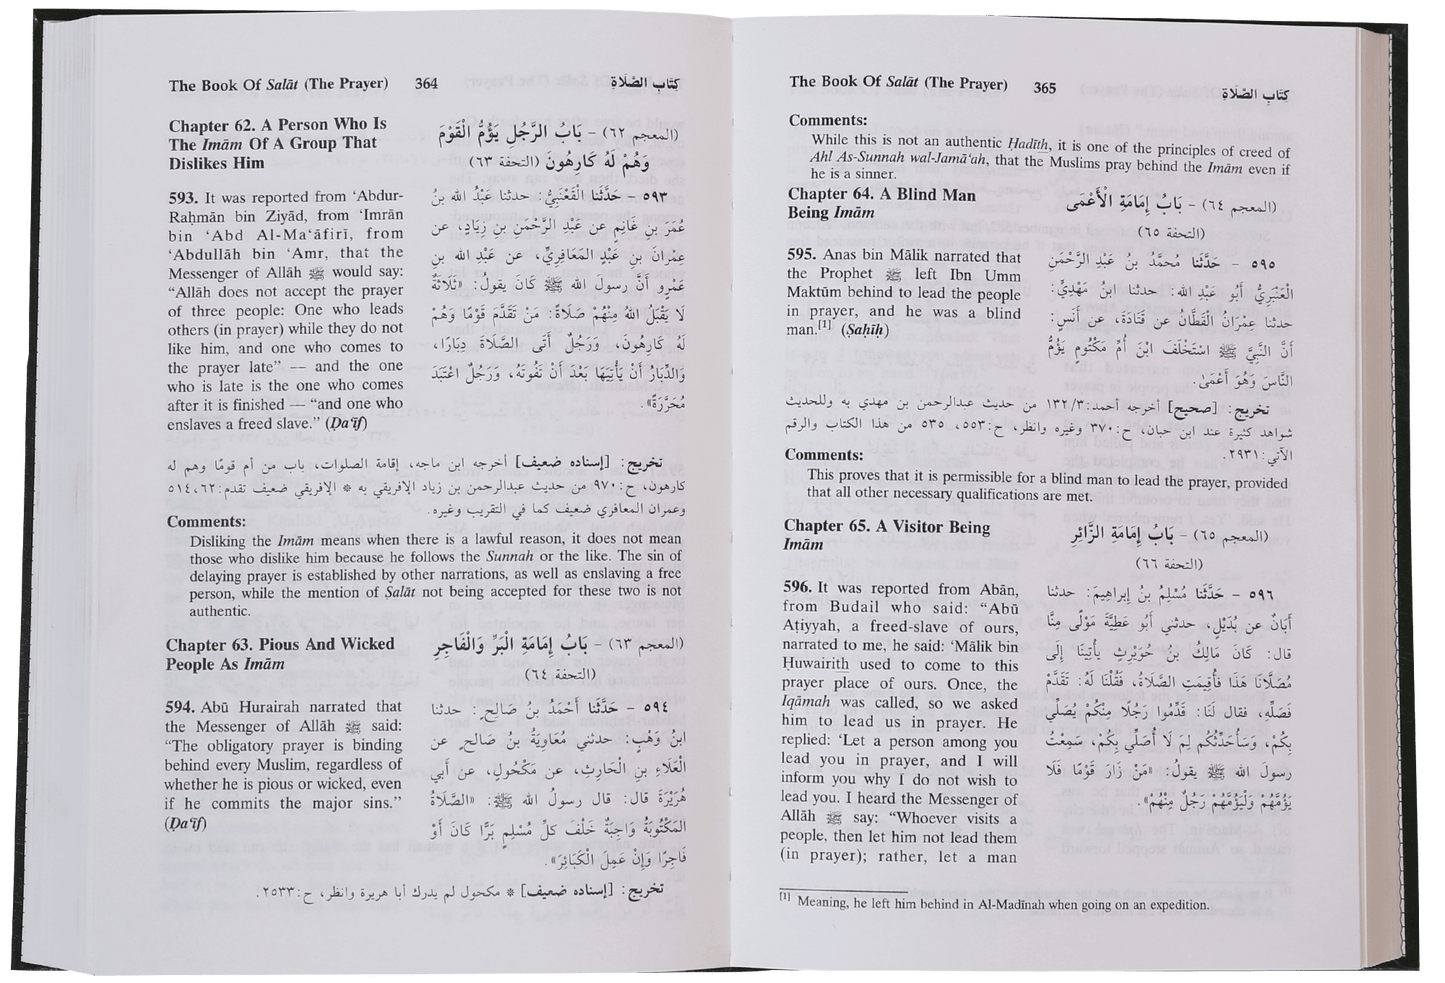 The Book Of Salāt (The Prayer) 364 كتاب الصَّلَاةِ
Chapter 62. A Person Who Is
The Imām Of A Group That
Dislikes Him
(المعجم ٦٢) - بَابُ الرَّجُلِ يَؤُمُّ الْقَوْمَ
وَهُمْ لَهُ كَارِهُونَ (التحفة ٦٣)
593. It was reported from ‘Abdur-
Raḥmān bin Ziyād, from ‘Imrān
bin ‘Abd Al-Ma‘āfirī, from
‘Abdullāh bin ‘Amr, that the
Messenger of Allāh ﷺ would say:
“Allāh does not accept the prayer
of three people: One who leads
others (in prayer) while they do not
like him, and one who comes to
the prayer late” — and the one
who is late is the one who comes
after it is finished — “and one who
enslaves a freed slave.” (Ḍa‘īf)
٥٩٣ - حَدَّثَنَا الْقَعْنَبِيُّ: حدثنا عَبْدُ الله بنُ
عُمَرَ بنِ غَانِمٍ عن عَبْدِ الرَّحْمَنِ بنِ زِيَادٍ، عن
عِمْرَانَ بنِ عَبْدٍ المَعَافِرِيِّ، عن عَبْدِ الله بنِ
عَمْرٍو أنَّ رسولَ الله ﷺ كَانَ يقولُ: «ثَلَاثَةٌ
لَا يَقْبَلُ اللهُ مِنْهُمْ صَلَاةً: مَنْ تَقَدَّمَ قَوْمًا وَهُمْ
لَهُ كَارِهُونَ، وَرَجُلٌ أتَى الصَّلَاةَ دِبَارًا،
وَالدِّبَارُ أنْ يَأْتِيَهَا بَعْدَ أنْ تَفُوتَهُ، وَرَجُلٌ اعْتَبَدَ
مُحَرَّرَةً».
تخريج: [إسناده ضعيف] أخرجه ابن ماجه، إقامة الصلوات، باب من أم قومًا وهم له
كارهون، ح: ٩٧٠ من حديث عبدالرحمن بن زياد الإفريقي به * الإفريقي ضعيف تقدم: ٦٢، ٥١٤
وعمران المعافري ضعيف كما في التقريب وغيره.
Comments:
Disliking the Imām means when there is a lawful reason, it does not mean
those who dislike him because he follows the Sunnah or the like. The sin of
delaying prayer is established by other narrations, as well as enslaving a free
person, while the mention of Ṣalāt not being accepted for these two is not
authentic.
Chapter 63. Pious And Wicked
People As Imām
(المعجم ٦٣) - بَابُ إمَامَةِ الْبَرِّ وَالْفَاجِرِ
(التحفة ٦٤)
594. Abū Hurairah narrated that
the Messenger of Allāh ﷺ said:
“The obligatory prayer is binding
behind every Muslim, regardless of
whether he is pious or wicked, even
if he commits the major sins.”
(Ḍa‘īf)
٥٩٤ - حَدَّثَنَا أَحْمَدُ بنُ صَالِحٍ: حدثنا
ابنُ وَهْبٍ: حدثني مُعَاوِيَةُ بنُ صَالحٍ عن
الْعَلَاءِ بنِ الْحَارِثِ، عن مَكْحُولٍ، عن أبي
هُرَيْرَةَ قال: قال رسولُ الله ﷺ: «الصَّلَاةُ
المَكْتُوبَةُ وَاجِبَةٌ خَلْفَ كلِّ مُسْلِمٍ بَرًّا كَانَ أوْ
فَاجِرًا وَإنْ عَمِلَ الْكَبَائِرَ».
تخريج: [إسناده ضعيف] * مكحول لم يدرك أبا هريرة وانظر، ح: ٢٥٣٣.
The Book Of Salāt (The Prayer) 365 كتاب الصَّلَاةِ
Comments:
While this is not an authentic Ḥadīth, it is one of the principles of creed of
Ahl As-Sunnah wal-Jamā‘ah, that the Muslims pray behind the Imām even if
he is a sinner.
Chapter 64. A Blind Man
Being Imām
(المعجم ٦٤) - بَابُ إمَامَةِ الأَعْمَى
(التحفة ٦٥)
595. Anas bin Mālik narrated that
the Prophet ﷺ left Ibn Umm
Maktūm behind to lead the people
in prayer, and he was a blind
man.[1] (Ṣaḥīḥ)
٥٩٥ - حَدَّثَنا مُحَمَّدُ بنُ عَبْدِ الرَّحْمَنِ
الْعَنْبَرِيُّ أَبُو عَبْدِ الله: حدثنا ابنُ مَهْدِيٍّ:
حدثنا عِمْرَانُ الْقَطَّانُ عن قَتَادَةَ، عن أنَسٍ:
أنَّ النَّبيَّ ﷺ اسْتَخْلَفَ ابْنَ أُمِّ مَكْتُومٍ يَؤُمُّ
النَّاسَ وَهُوَ أعْمَى.
تخريج: [صحيح] أخرجه أحمد: ٣/ ١٣٢ من حديث عبدالرحمن بن مهدي به وللحديث
شواهد كثيرة عند ابن حبان، ح: ٣٧٠ وغيره وانظر، ح: ٥٥٣، ٥٣٥ من هذا الكتاب والرقم
الآتي: ٢٩٣١.
Comments:
This proves that it is permissible for a blind man to lead the prayer, provided
that all other necessary qualifications are met.
Chapter 65. A Visitor Being
Imām
(المعجم ٦٥) - بَابُ إمَامَةِ الزَّائِرِ
(التحفة ٦٦)
596. It was reported from Abān,
from Budail who said: “Abū
Aṭiyyah, a freed-slave of ours,
narrated to me, he said: ‘Mālik bin
Ḥuwairith used to come to this
prayer place of ours. Once, the
Iqāmah was called, so we asked
him to lead us in prayer. He
replied: ‘Let a person among you
lead you in prayer, and I will
inform you why I do not wish to
lead you. I heard the Messenger of
Allāh ﷺ say: “Whoever visits a
people, then let him not lead them
(in prayer); rather, let a man
٥٩٦ - حَدَّثَنا مُسْلِمُ بنُ إبراهِيمَ: حدثنا
أبَانُ عن بُدَيْلٍ، حدثني أبُو عَطِيَّةَ مَوْلًى مِنَّا
قال: كَانَ مَالِكُ بنُ حُوَيْرِثٍ يأْتِينَا إلَى
مُصَلَّانَا هَذَا فَأُقِيمَتِ الصَّلَاةُ، فَقُلْنَا لَهُ: تَقَدَّمْ
فَصَلِّهِ، فقال لَنَا: قَدِّمُوا رَجُلًا مِنْكُم يُصَلِّي
بِكُم، وَسَأُحَدِّثُكُم لِمَ لَا أُصَلِّي بِكُم، سَمِعْتُ
رسولَ الله ﷺ يقولُ: «مَنْ زَارَ قَوْمًا فَلَا
يَؤُمَّهُمْ وَلْيَؤُمَّهُمْ رَجُلٌ مِنْهُمْ».
[1] Meaning, he left him behind in Al-Madīnah when going on an expedition.